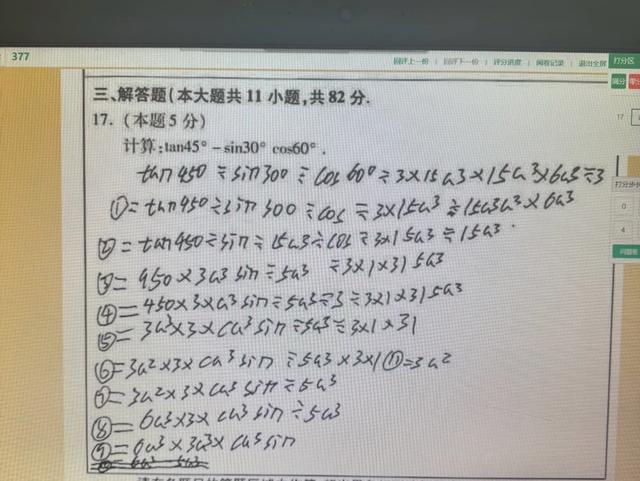 377
回评上一份 | 回评下一份 | 评分进度 | 阅卷记录 | 退出全屏
打分区
满分
17
打分步长
0
4
问题卷
三、解答题(本大题共 11 小题,共 82 分.
17. (本题 5 分)
计算:tan45° - sin30° cos60° .
tan450 ÷ sin300 ÷ cos600 ÷ 3×15a3×15a3×6a3÷3
①= tan450 ÷ sin 300 ÷ cos ÷ 3×15a³ ÷ 15a³a³ × 6a³
②= tan450 ÷ sin ÷ 15a³ ÷ cos ÷ 3×15a³ ÷ 15a³
③= 450 × 3a³ sin ÷ 5a³ ÷ 3×1×315a³
④= 450×3×ca³ sin ÷ 5a³ ÷ 3 ÷ 3×1×315a³
⑤= 3a³×3×ca³ sin ÷ 5a³ ÷ 3×1×31
⑥= 3a²×3× ca³ sin ÷ 5a³ ×3×1①=3a²
⑦= 3a²×3×ca³ sin ÷ 5a³
⑧= 6a³×3× ca³ sin ÷ 5a³
⑨= 6a³×3a³× ca³ sin